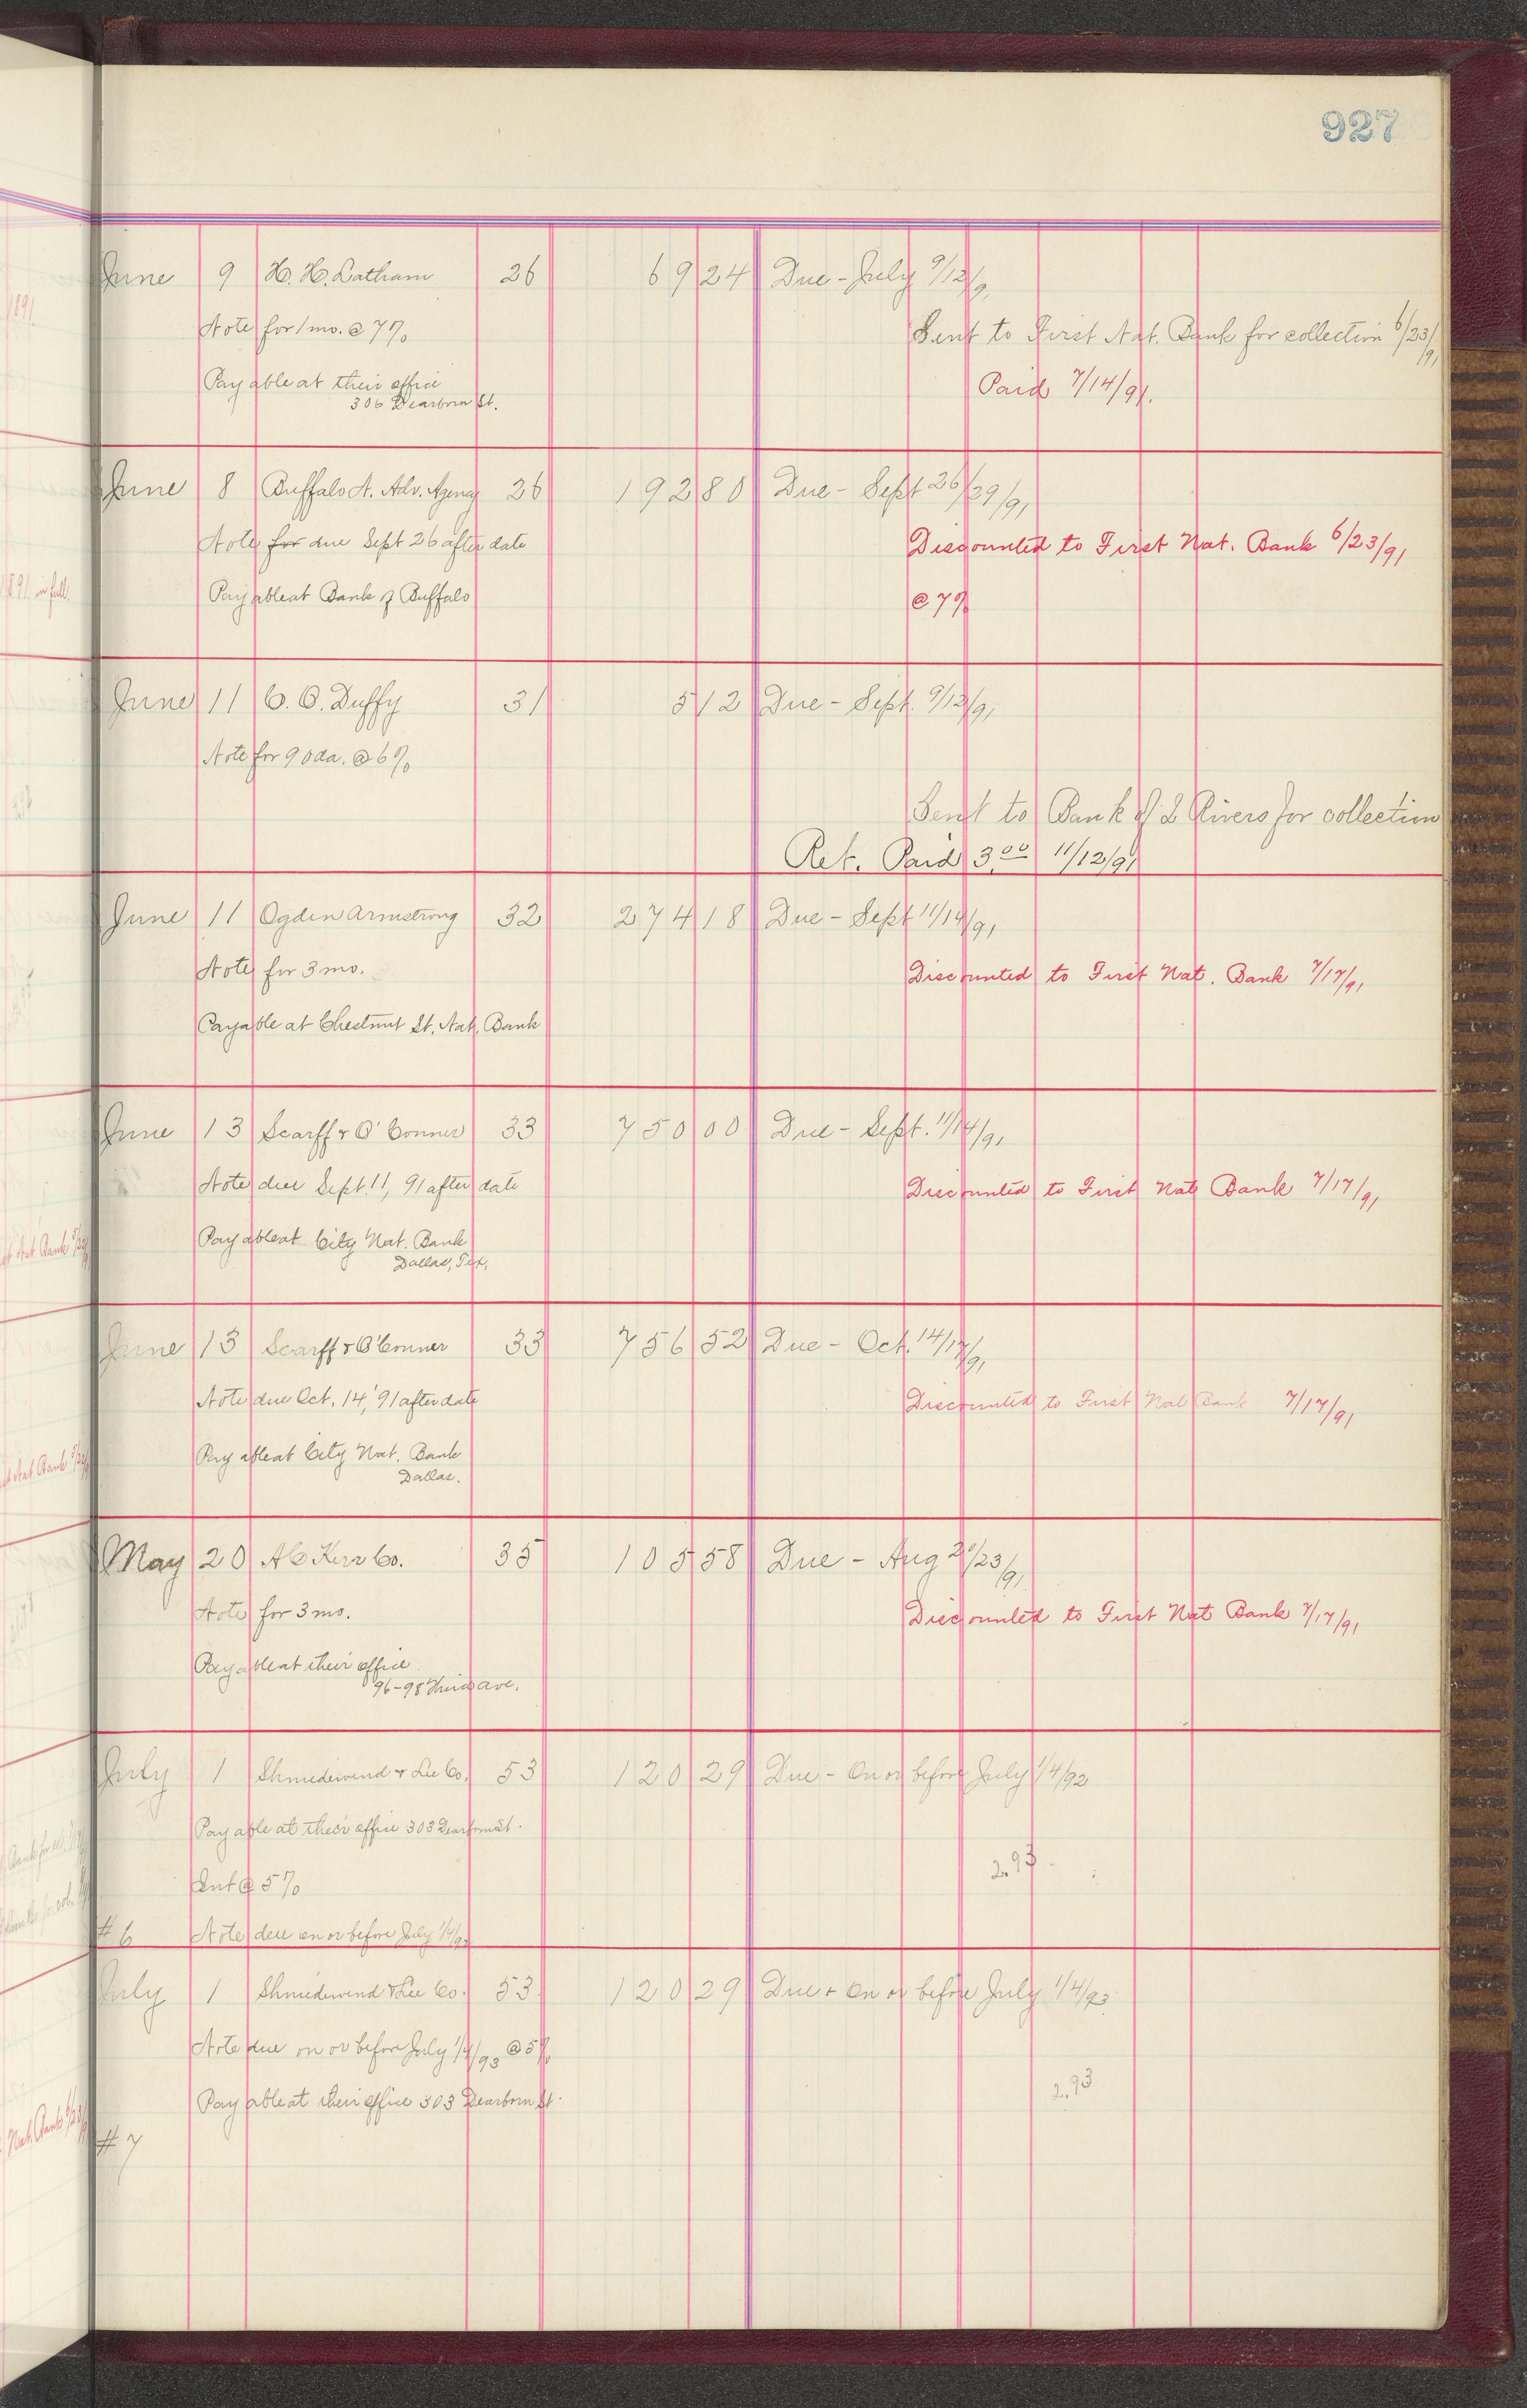 927
June 9 H. H. Latham 26 69 24 Due - July 9/12/91
Note for 1 mo. @ 7%
Sent to First Nat. Bank for collection 6/23/91
Payable at their office
306 Dearborn St.
Paid 7/14/91.
June 8 Buffalo A. Adv. Agency 26 192 80 Due - Sept 26/29/91
Note for due Sept 26 after date
Discounted to First Nat. Bank 6/23/91
Payable at Bank of Buffalo
@ 7%
June 11 C. O. Duffy 31 5 12 Due - Sept. 9/12/91
Note for 90 da. @ 6%
Sent to Bank of 2 Rivers for collection
Ret. Paid 3.00 11/12/91
June 11 Ogden Armstrong 32 274 18 Due - Sept 11/14/91
Note for 3 mo.
Discounted to First Nat. Bank 7/17/91
Payable at Chestnut St. Nat. Bank
June 13 Scarff & O'Conner 33 750 00 Due - Sept. 11/14/91
Note due Sept. 11, 91 after date
Discounted to First Nat Bank 7/17/91
Payable at City Nat. Bank
Dallas, Tex.
June 13 Scarff & O'Conner 33 756 52 Due - Oct. 14/17/91
Note due Oct. 14, '91 after date
Discounted to First Nat Bank 7/17/91
Payable at City Nat. Bank
Dallas.
May 20 A C Kerr Co. 35 105 58 Due - Aug 20/23/91
Note for 3 mo.
Discounted to First Nat Bank 7/17/91
Payable at their office
96-98 Third ave.
July 1 Shniedewend & Lee Co. 53 120 29 Due - On or before July 1/4/92
Payable at their office 303 Dearborn St.
2.93
Int @ 5%
#6 Note due on or before July 1/4/92
July 1 Shniedewend & Lee Co. 53 120 29 Due + On or before July 1/4/93
Note due on or before July 1/4/93 @ 5%
2.93
Payable at their office 303 Dearborn St.
#7